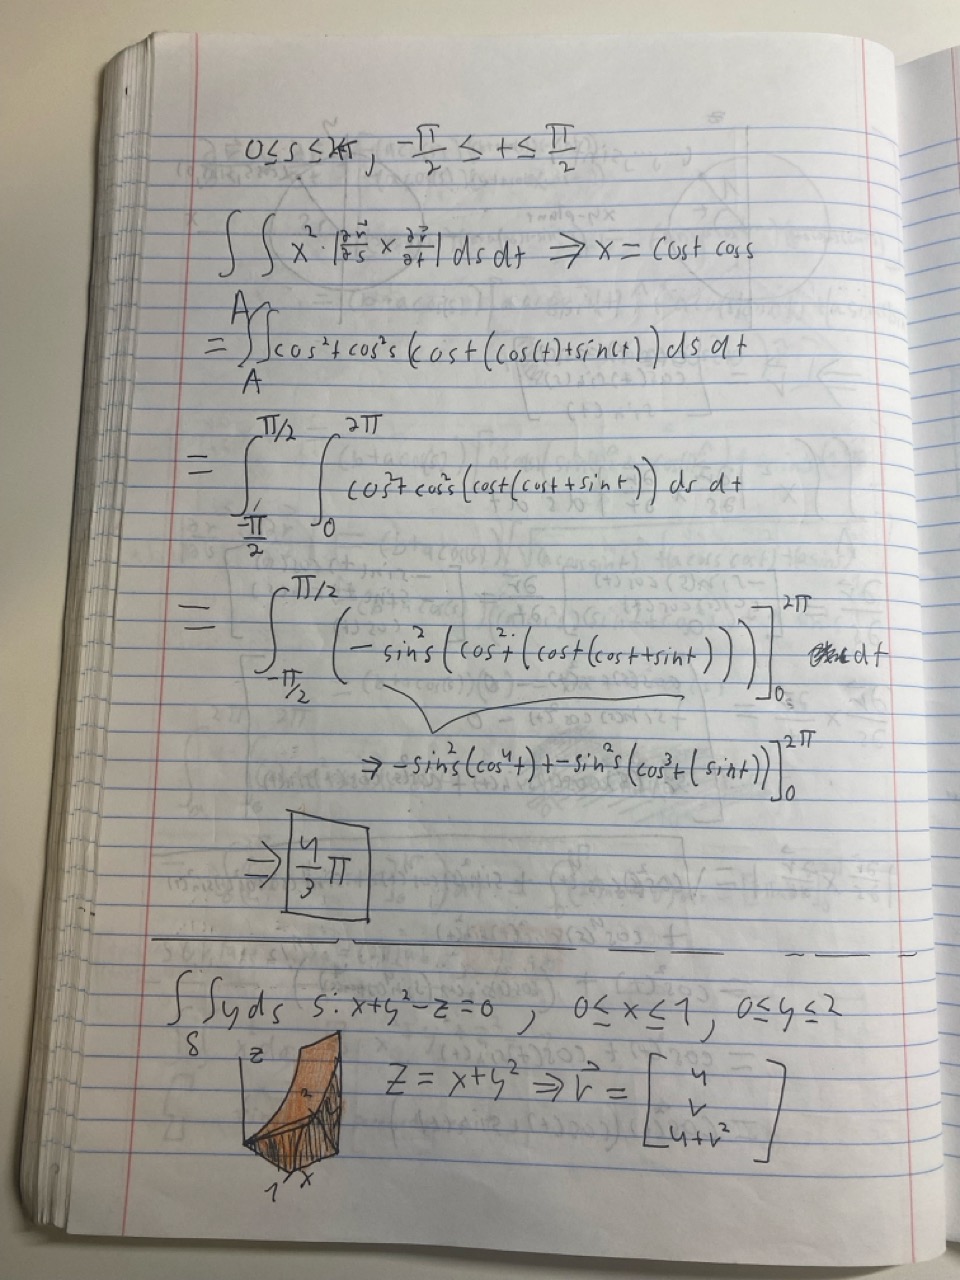 0 ≤ s ≤ 2π, -π/2 ≤ t ≤ π/2
∫∫_A x² · |∂r⃗/∂s × ∂r⃗/∂t| ds dt ⇒ x = cost coss
= ∫∫_A cos²t cos²s (cost(cos(t)+sin(t)) ds dt
= ∫_{-π/2}^{π/2} ∫_0^{2π} cos²t cos²s (cost(cost+sint)) ds dt
= ∫_{-π/2}^{π/2} (-sin²s (cos²t (cost(cost+sint)))]_0^{2π} dt
⇒ -sin²s(cos⁴t) + -sin²s(cos³t(sint))]_0^{2π}
⇒ 4/3 π
∫∫_S y ds S: x+y²-z=0, 0 ≤ x ≤ 1, 0 ≤ y ≤ 2
z 2 1 x
z = x+y² ⇒ r⃗ = [u v u+v²]